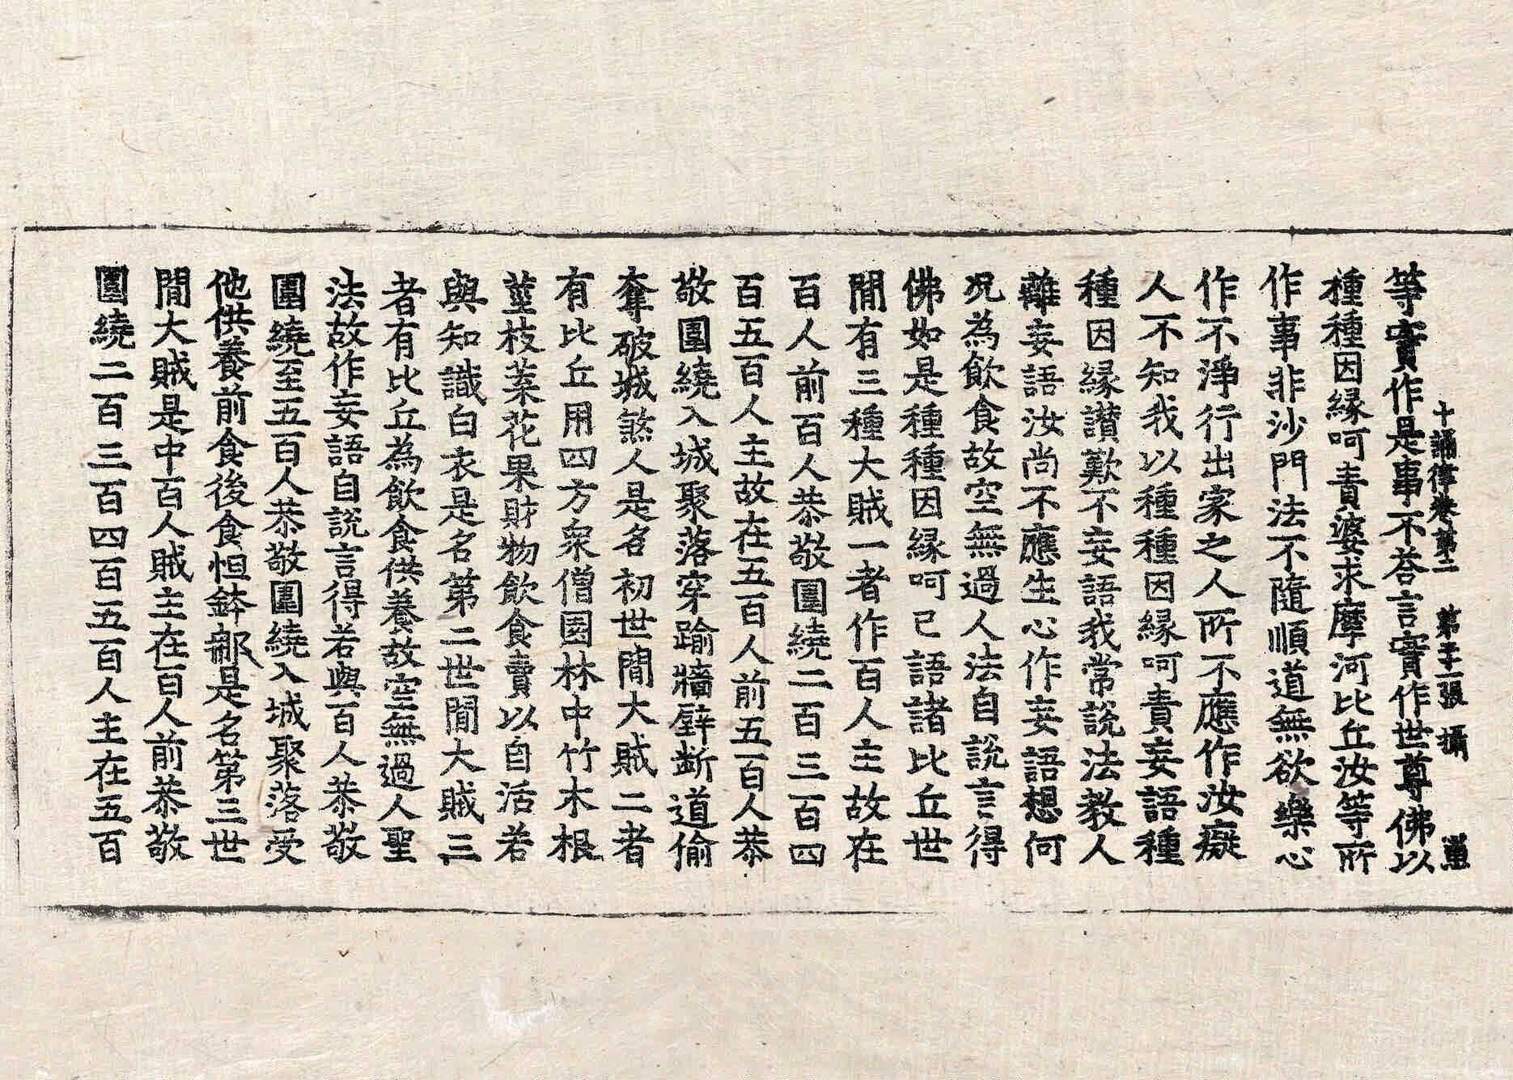 十誦律卷第二　第二十一張　攝
等實作是事不荅言實作世尊佛以
種種因縁呵責婆求摩河比丘汝等所
作事非沙門法不隨順道無欲樂心
作不淨行出家之人所不應作汝癡
人不知我以種種因縁呵責妄語種
種因縁讃歎不妄語我常説法教人
離妄語汝尚不應生心作妄語想何
况為飲食故空無過人法自說言得
佛如是種種因縁呵已語諸比丘世
閒有三種大賊一者作百人主故在
百人前百人恭敬圍繞二百三百四
百五百人主故在五百人前五百人恭
敬圍繞入城聚落穿踰牆壁斷道偷
奪破城煞人是名初世閒大賊二者
有比丘用四方衆僧園林中竹木根
莖枝葉花果財物飲食賣以自活若
與知識白衣是名第二世閒大賊三
者有比丘為飲食供養故空無過人聖
法故作妄語自說言得若與百人恭敬
圍繞至五百人恭敬圍繞入城聚落受
他供養前食後食怛鉢那是名第三世
閒大賊是中百人賊主在百人前恭敬
圍繞二百三百四百五百人主在五百